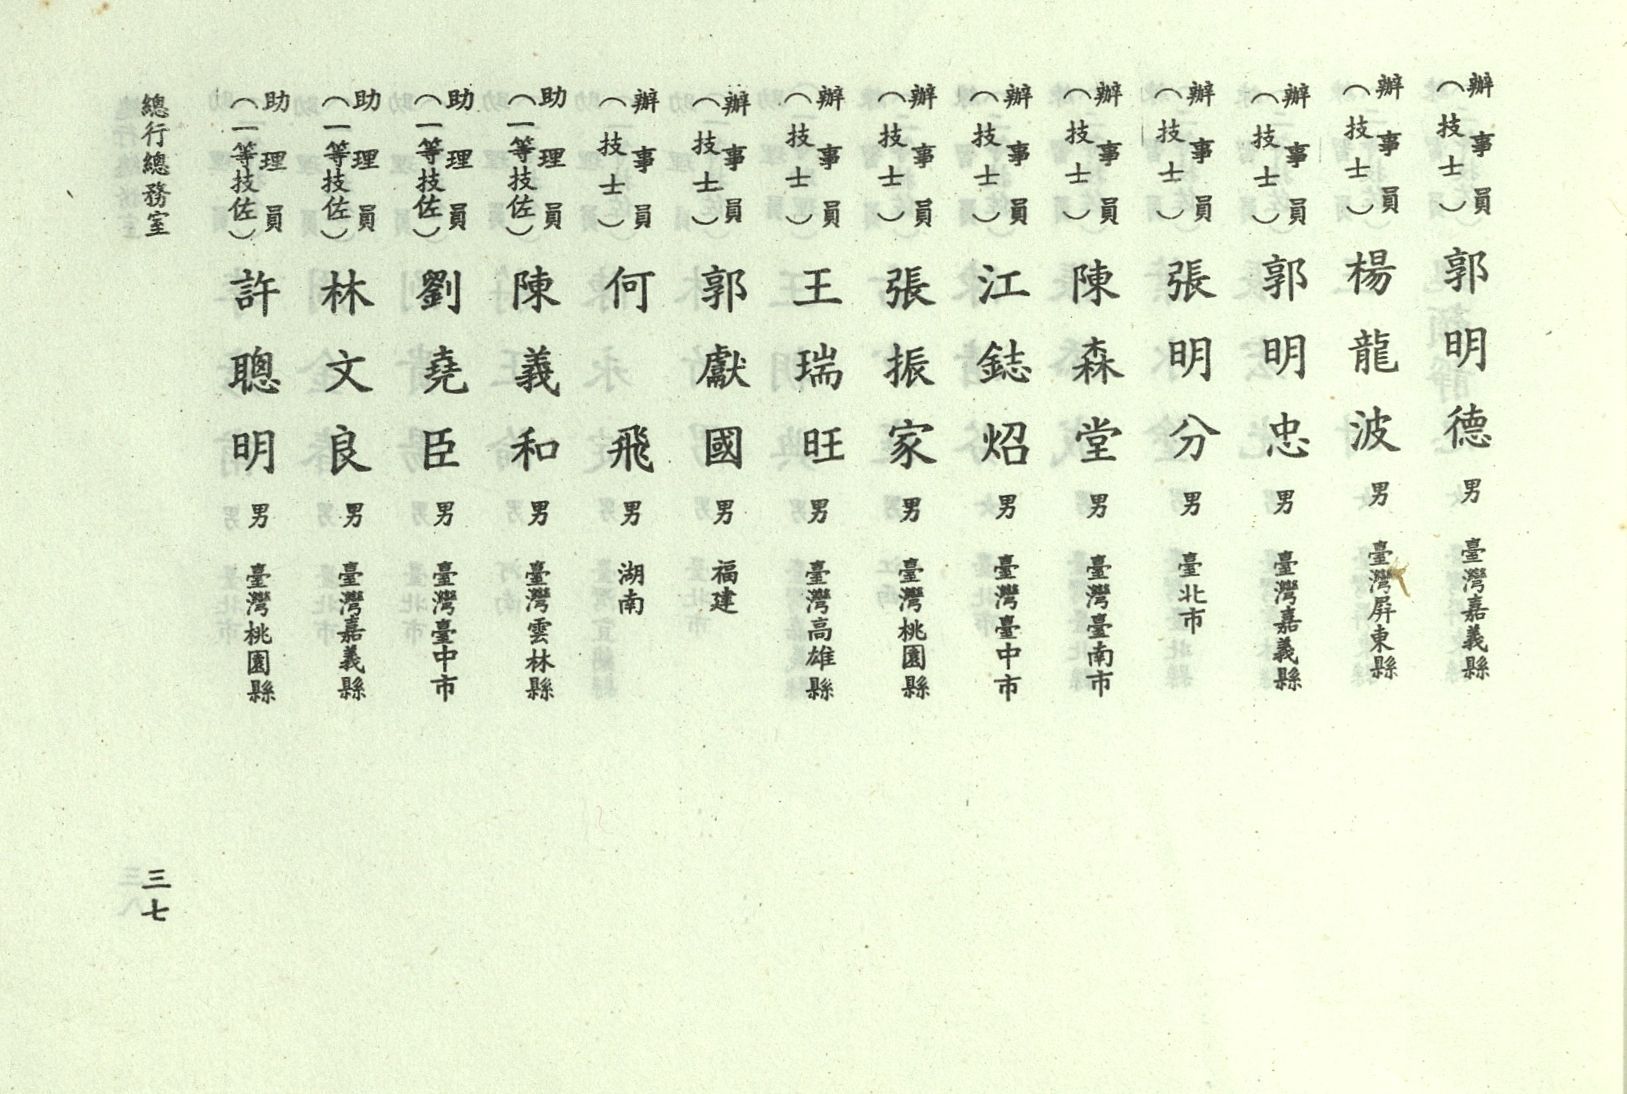 辦事員（技士） 郭明德 男 臺灣嘉義縣
辦事員（技士） 楊龍波 男 臺灣屏東縣
辦事員（技士） 郭明忠 男 臺灣嘉義縣
辦事員（技士） 張明分 男 臺北市
辦事員（技士） 陳森堂 男 臺灣臺南市
辦事員（技士） 江鋕炤 男 臺灣臺中市
辦事員（技士） 張振家 男 臺灣桃園縣
辦事員（技士） 王瑞旺 男 臺灣高雄縣
辦事員（技士） 郭獻國 男 福建
辦事員（技士） 何飛 男 湖南
助理員（一等技佐） 陳義和 男 臺灣雲林縣
助理員（一等技佐） 劉堯臣 男 臺灣臺中市
助理員（一等技佐） 林文良 男 臺灣嘉義縣
助理員（一等技佐） 許聰明 男 臺灣桃園縣
總行總務室
三七